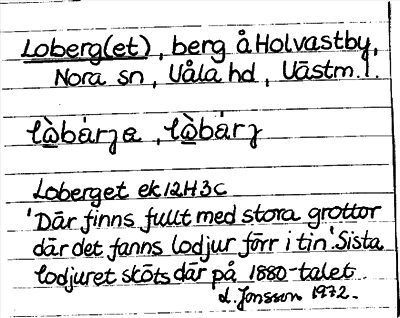 Loberg(et), berg å Holvastby,
Nora sn, Våla hd, Västm. l.
lò̲bárȝa, lò̲bárȝ
Loberget ek 12H3c
'Där finns fullt med stora grottor
där det fanns lodjur förr i tin'. Sista
lodjuret sköts där på 1880-talet.
L. Jonsson 1972.